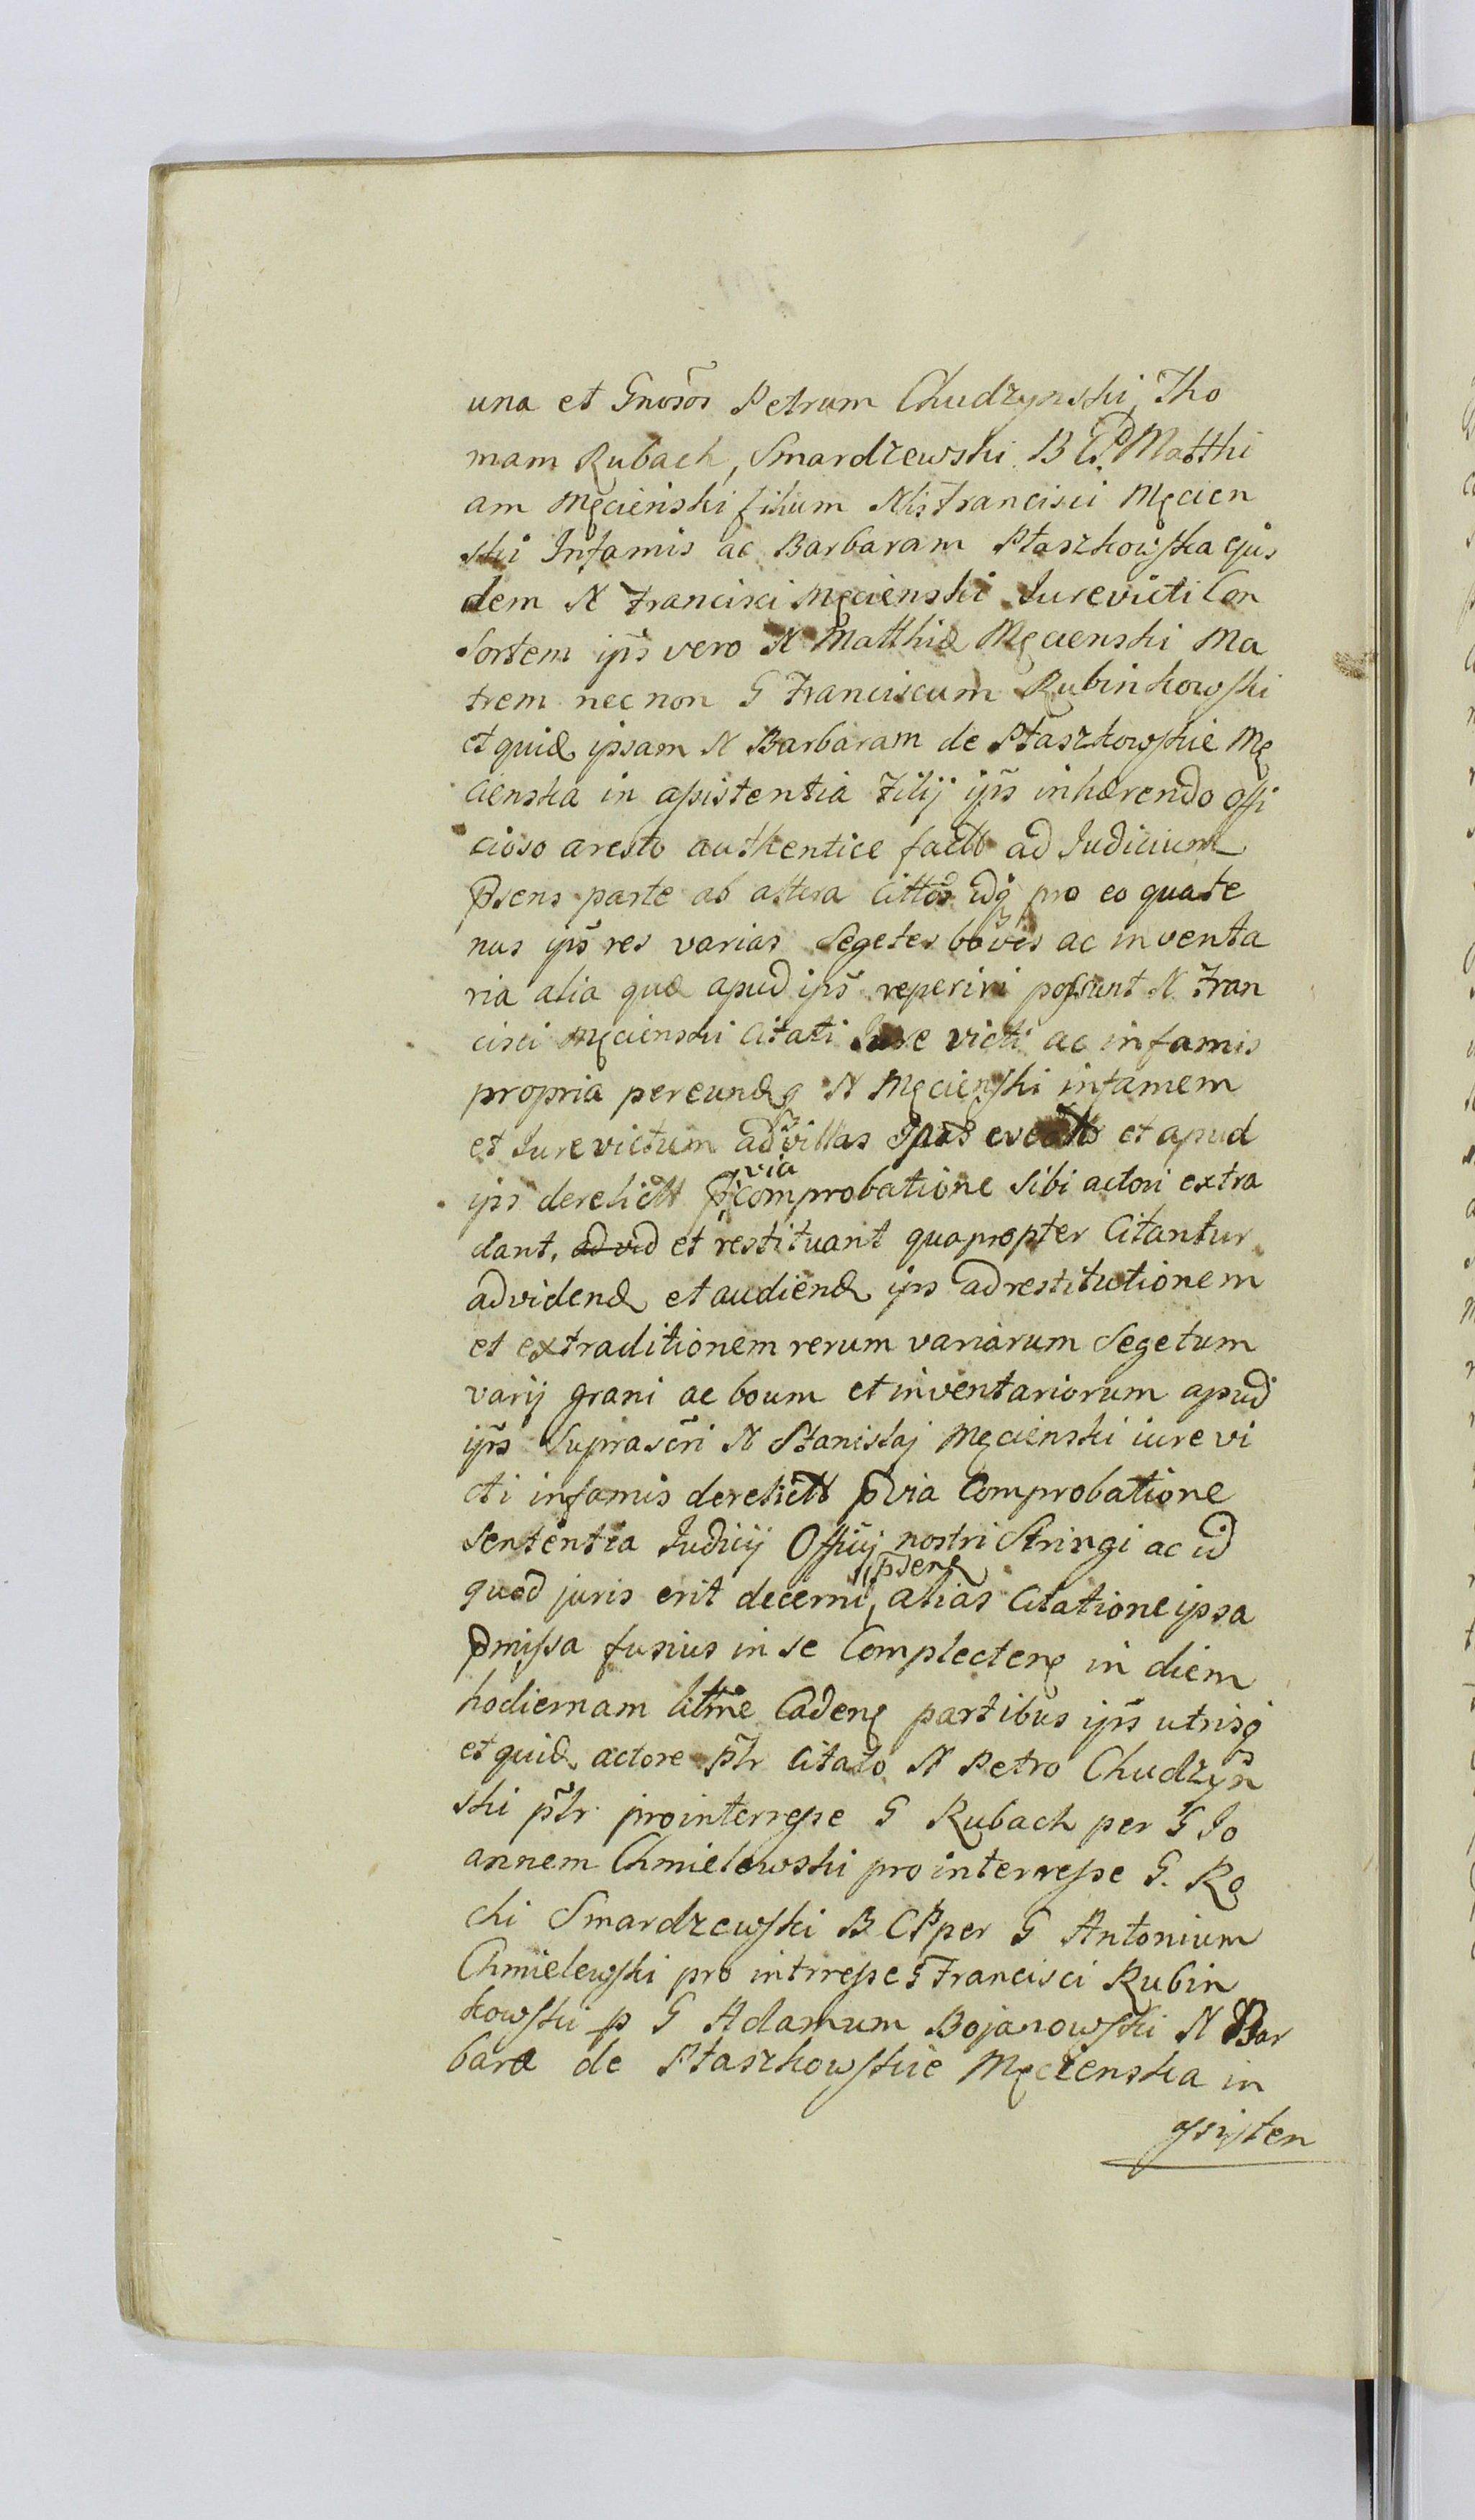 una et Gnosos Petrum Chudzynski, Tho
mam Rubach, Smardzewski B C P Matthi
am Męcienski filium Nlis Francisci Męcien
ski Infamis ac Barbaram Ptaszkowska ejus
dem N Francisci Męcienski Jurevicti Con
sortem ips vero N Matthiæ Męcienski Ma
trem nec non G Franciscum Rubinkowski
et quid ipsam N Barbaram de Ptaszkowskie Mę
cienska in assistentia Filij ips inhærendo offi
cioso aresto authentice facto ad Judicium
psens parte ab altera cittos idq pro eo quate
nus ips res varias Segetes boves ac inventa
ria alia quæ apud ips reperiri possunt N Fran
cisci Męcienski Citati Jure victi ac infamis
propria per eund N Męcienski infamem
et Jure victum ad villas et apud
ips derelict pvia comprobatione sibi actori extra
dant, ad vid et restituant quapropter Citantur
ad vidend et audiend ips ad restitutionem
et extraditionem rerum variarum Segetum
varij grani ac boum et inventariorum apud
ips suprascri N Stanislaj Męcienski iure vi
cti infamis derelict pvia Comprobatione
sententia Judicij Officij nostri Stringi ac id
quod juris erit decerni, psens alias Citatione ipsa
pmissa fusius in se Complecten in diem
hodiernam littme Caden partibus ips utrisq
et quid actore pltr citato N Petro Chudzyn
ski pltr pro interresse G Rubach per G Jo
annem Chmielewski pro interresse G. Ro
chi Smardzewski B C P per G Antonium
Chmielewski pro intrresse G Francisci Rubin
kowski p G Adamum Bojanowski N Bar
bara de Ptaszkowskie Męcienska in
assisten